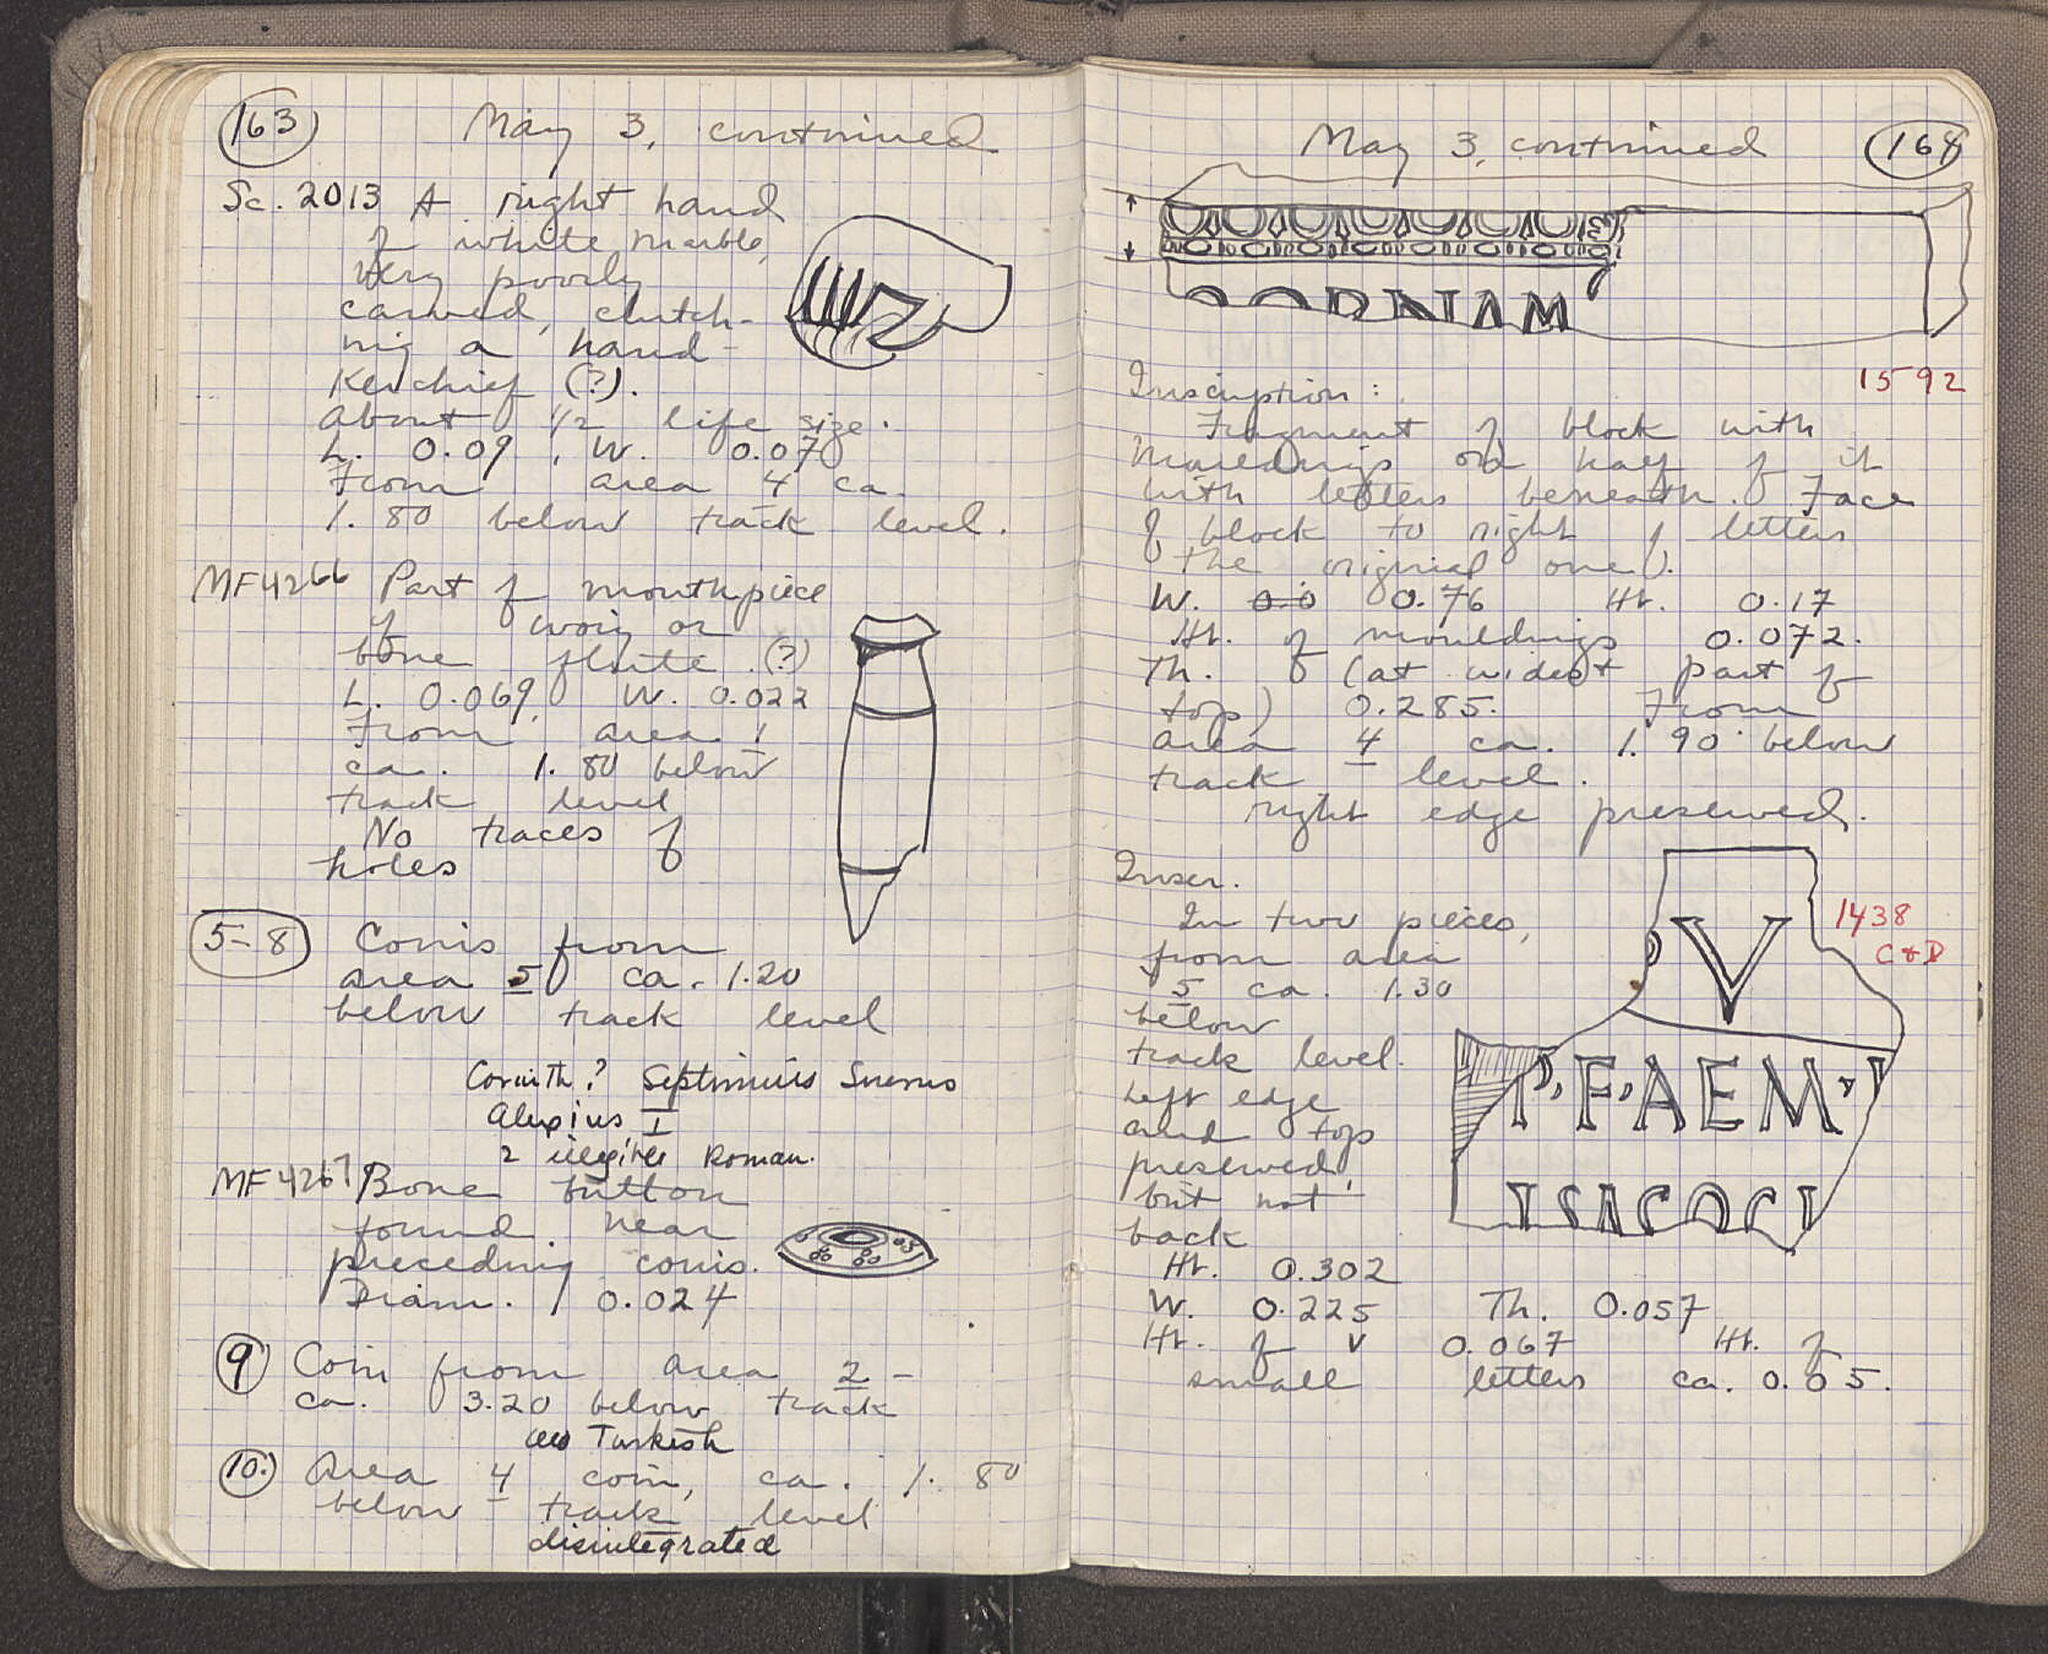 163
May 3, continued
Sc. 2013 A right hand
of white marble,
very poorly
carved, clutch-
ing a hand-
kerchief (?).
About 1/2 life size.
L. 0.09, W. 0.07
From area 4 ca.
1.80 below track level.
MF4266 Part of mouthpiece
of ivory or
bone flute (?)
L. 0.069, W. 0.022
From area 1
ca. 1.80 below
track level
No traces of
holes
5-8 Coins from
area 5 ca. 1.20
below track level
Corinth? Septimius Severus
Alexius I
2 illegible Roman.
MF4267 Bone button
found near
preceding coins.
Diam. 0.024
9 Coin from area 2 -
ca. 3.20 below track
Turkish
10. Area 4 coin, ca. 1.80
below track level
disintegrated
May 3, continued
168
ORNAM
Inscription:
1592
Fragment of block with
mouldings on half of it
with letters beneath. Face
of block to right of letters
the original one).
W. 0.0 0.76 Ht. 0.17
Ht. of mouldings 0.072.
Th. of (at widest part of
top) 0.285. From
area 4 ca. 1.90 below
track level.
right edge preserved.
Inscr.
In two pieces,
from area
5 ca. 1.30
below
track level.
Left edge
and top
preserved,
but not
back
V
1438
C+D
P,F,AEM
Ht. 0.302
W. 0.225 Th. 0.057
Ht. of V 0.067 Ht. of
small letters ca. 0.05.